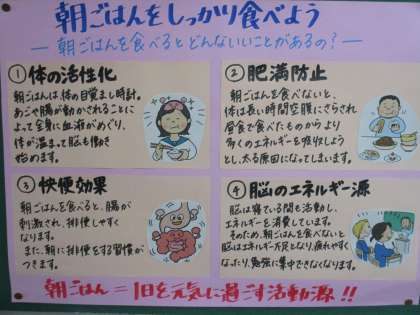 朝ごはんをしっかり食べよう
－朝ごはんを食べるとどんないいことがあるの？－
①体の活性化
朝ごはんは体の目覚まし時計。
あごや腸が動かされることに
よって全身に血液がめぐり、
体が温まって脳も働き
始めます。
②肥満防止
朝ごはんを食べないと、
体は長い時間空腹にさらされ
昼食で食べたものからより
多くのエネルギーを吸収しよう
とし、太る原因になってしまいます。
③快便効果
朝ごはんを食べると、腸が
刺激され、排便しやすく
なります。
また、朝に排便をする習慣が
つきます。
④脳のエネルギー源
脳は寝ている間も活動し、
エネルギーを消費しています。
そのため、朝ごはんを食べないと
脳はエネルギー不足となり、疲れやすく
なったり、勉強に集中できなくなります。
朝ごはん＝1日を元気に過ごす活動源!!